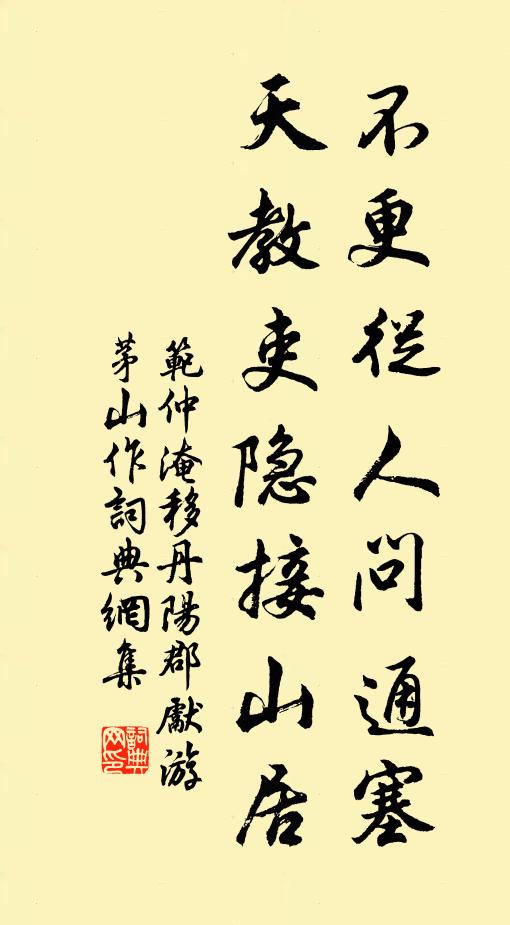 不更從人問通塞
天教吏隐接山居
範仲淹移丹陽郡獻游
茅山作詞典網集
詞典网印